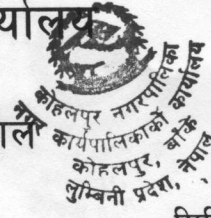 र्यालय
कोहलपुर नगरपालिका
नगर कार्यपालिकाको कार्यालय
कोहलपुर, बाँके
लुम्बिनी प्रदेश, नेपाल